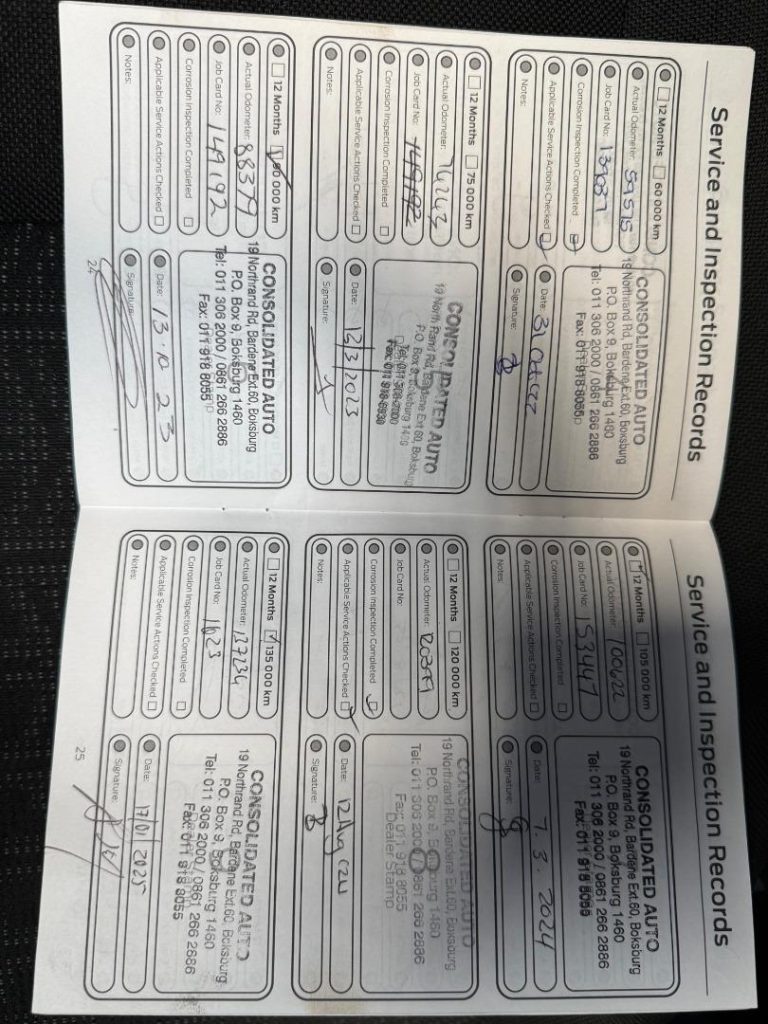 Service and Inspection Records
12 Months 60 000 km
Actual Odometer: 59515
Job Card No: 139087
Corrosion Inspection Completed
Applicable Service Actions Checked
Notes:
CONSOLIDATED AUTO
19 Northrand Rd, Bardene Ext.60, Boksburg
P.O. Box 9, Boksburg 1460
Tel: 011 306 2000 / 0861 266 2886
Fax: 011 918 8055
Date: 31
Signature:
12 Months 75 000 km
Actual Odometer: 74243
Job Card No: 149192
Corrosion Inspection Completed
Applicable Service Actions Checked
Notes:
CONSOLIDATED AUTO
19 North Rand Rd, Bardene Ext 60, Boksburg
P.O. Box 9, Boksburg 1460
Date: 13/3/2023
Signature:
12 Months 90 000 km
Actual Odometer: 88379
Job Card No: 149192
Corrosion Inspection Completed
Applicable Service Actions Checked
Notes:
CONSOLIDATED AUTO
19 Northrand Rd, Bardene Ext.60, Boksburg
P.O. Box 9, Boksburg 1460
Tel: 011 306 2000 / 0861 266 2886
Fax: 011 918 8055
Date: 13.10 23
Signature:
24
Service and Inspection Records
12 Months 105 000 km
Actual Odometer: 100622
Job Card No: 153447
Corrosion Inspection Completed
Applicable Service Actions Checked
Notes:
CONSOLIDATED AUTO
19 Northrand Rd, Bardene Ext.60, Boksburg
P.O. Box 9, Boksburg 1460
Tel: 011 306 2000 / 0861 266 2886
Fax: 011 918 8055
Date: 7. 3. 2024
Signature:
12 Months 120 000 km
Actual Odometer:
Job Card No:
Corrosion Inspection Completed
Applicable Service Actions Checked
Notes:
CONSOLIDATED AUTO
19 Northrand Rd, Bardene Ext.60, Boksburg
P.O. Box 9, Boksburg 1460
Tel: 011 306 2000 / 0861 266 2886
Fax: 011 918 8055
Dealer Stamp
Date: 12 Aug
Signature:
12 Months 135 000 km
Actual Odometer: 137234
Job Card No: 1623
Corrosion Inspection Completed
Applicable Service Actions Checked
Notes:
CONSOLIDATED AUTO
19 Northrand Rd, Bardene Ext.60, Boksburg
P.O. Box 9, Boksburg 1460
Tel: 011 306 2000 / 0861 266 2886
Fax: 011 918 8055
Date: 17/01/2025
Signature:
25